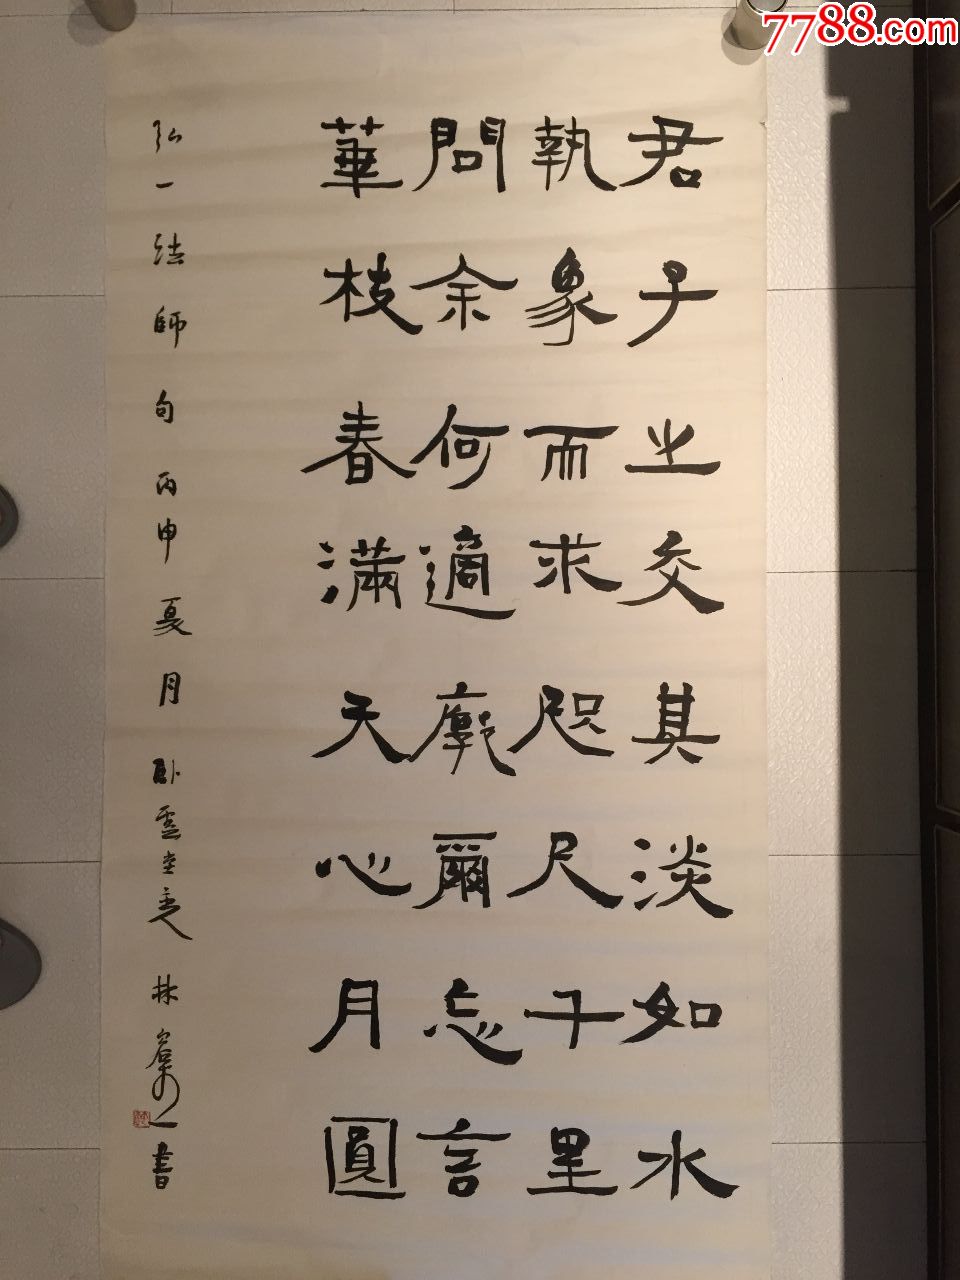 君子之交其淡如水
執象而求咫尺千里
問余何適廓爾忘言
華枝春滿天心月圓
弘一法師句丙申夏月卧雲堂主人林
書
7788.com